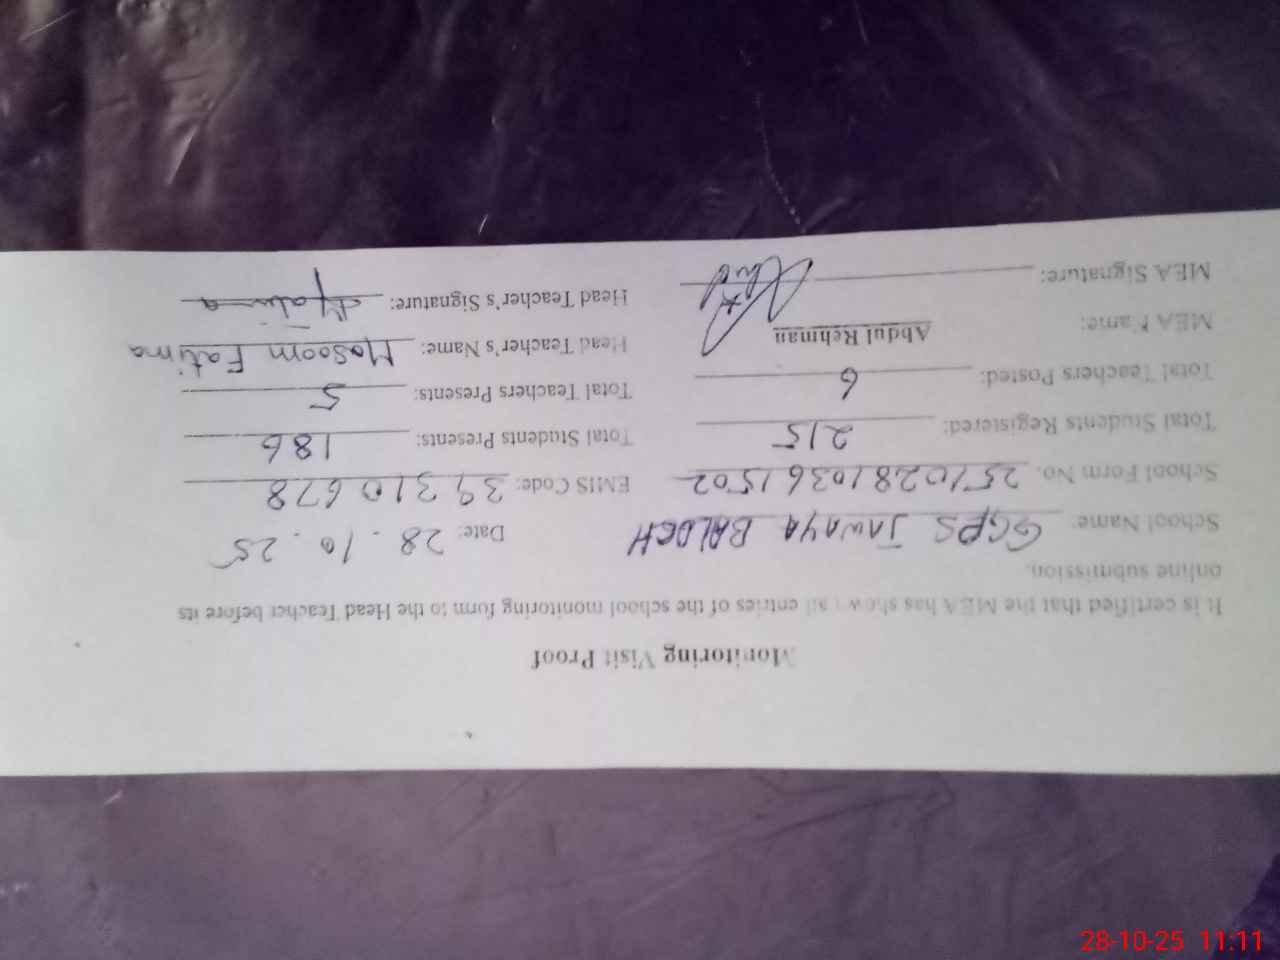 Monitoring Visit Proof
It is certified that the MEA has shown all entries of the school monitoring form to the Head Teacher before its
online submission.
School Name: GGPS JAWAYA BALOCH Date: 28.10.25
School Form No. 25102810361502 EMIS Code: 39310678
Total Students Registered: 215 Total Students Presents: 186
Total Teachers Posted: 6 Total Teachers Presents: 5
MEA Name: Abdul Rehman Head Teacher's Name: Masoom Fatima
MEA Signature: Head Teacher's Signature: Fatima
28-10-25 11:11